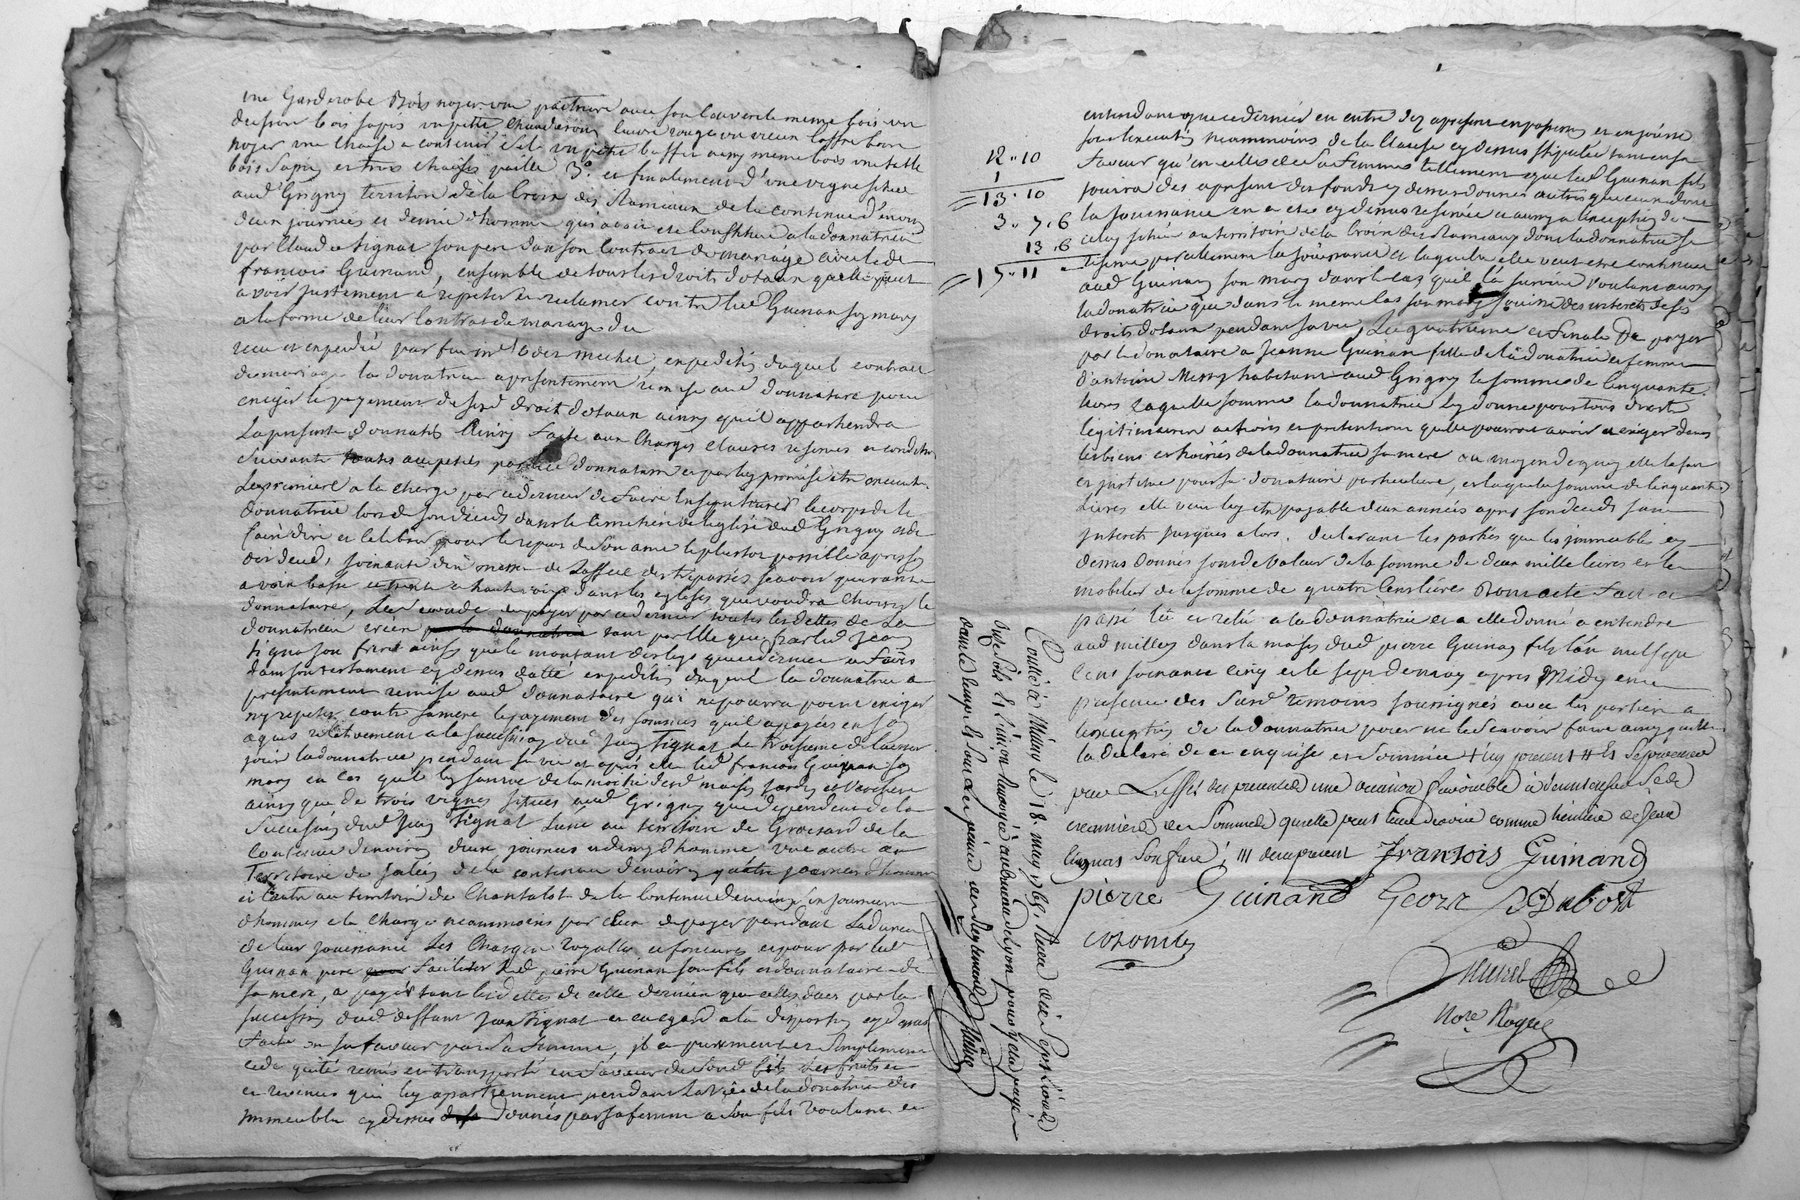 une Garderobe Bois noyer une paitriere avec son couvercle meme bois un
bois sapin un petit chauderon cuivre rouge un vieux coffre bois
noyer une chaise a contenir sel un petit buffet aussy meme bois une table
bois sapin et trois chaises paille 3.° et finalement d'une vigne située
aud Grigny territoire de la Croix des Rameaux de la contenue d'environ
deux journées et demie d'homme qui a été constitué a la donnatrice
par Claude Tignat son pere dans son Contract de mariage avec led
francois Guinand, ensemble de tous les droits dotaux quelle peut
avoir justement a repeter et reclamer contre led Guinan son mary
a la forme de leur Contrat de mariage du
recu et expedié par feu me expeditis duquel contract
de mariage la donatrice a presentement remise aud donnataire pour
exiger le payement de sesd droits dotaux ainsy quil apparthiendra
La presente donnation ainsy faite aux charges clauses reserves et conditions
suivantes toutes acceptées par led donnataire et par luy promises etre executés
La premiere a la charge par ce dernier de faire Ensepulturer le corps de la
donnatrice lors de son deceds dans le cimetiere de leglise dud Grigny et de
faire dire et celebrer pour le repos de son ame le plustot possible apres son
did deced, soixante dix messes de Loffice des trepassés scavoir quarante
a voix basse et trente a haute voix dans les eglises que voudra choisir le
donnataire, La seconde de payer par ce dernier toutes les dettes de La
donnatrice tant par elle que par led Jean
Tignat son frere ainsy que le montant des legs que ce dernier a faits
dans son testament cy dessus datté expeditis duquel la donnatrice a
presentement remise aud donnataire qui ne pourra point exiger
ny repeter contre sa mere le payement des sommes quil a payées en son
acquit relativement a la succession dud Jean Tignat La troisieme de laisser
jouir la donnatrice pendant sa vie et apres elle led francois Guinan son
mary en cas quil luy survive de la moitié desd maison jardin et verchere
ainsy que de trois vignes situées aud Grigny qui dependent de la
succession dud Jean Tignat Lune au territoire de de la
contenue d'environ deux journées et demy d'homme Une autre au
Territoire de de la contenue d'environ quatre journées d'homme
et l'autre au territoire de Chantalot de la contenue d'environ six journées
d'hommes a la charge neammoins par eux de payer pendant La durée
de leur jouissance Les Charges royalles et foncieres et pour par led
Guinan pere faciliter aud pierre Guinan son fils et donnataire de
sa mere, a payer tant les dettes de cette derniere que celles dues par la
succession dud deffunt Jean Tignat et en egard a la disposition cy dessus
faite en sa faveur par sa femme, il a purement et simplement
cedé quitté remis et transporté en faveur de sond fils les fruits et
et revenus qui luy apartiennent pendant la vie de la donatrice des
immeubles cy dessus donnés par sa femme a son fils voulant et
12 .. 10
1
13 .. 10
3 . 7 . 6
13 . 6
15 .. 11
entendant que ce dernier en entre dez apresent en possession et en jouisse
sous lexecution neammoins de la Clause cy dessus stipulée tant en sa
faveur qu'en celle de sa femme tellement que led Guinan fils
jouira des apresent des fonds cy dessus donnés autres que ceux dont
la jouissance en a eté cy dessus reservée et aussy a lexception de
celuy situé au territoire de la Croix des Rameaux dont la donnatrice se
reserve pareillement la jouissance et laquelle elle veut etre continuée
aud Guinan son mary dans le cas quil la survive voulant aussy
la donatrice que dans le meme cas son mary jouisse des interets desd
droits dotaux pendant sa vie, La quatrieme et finale De payer
par le donataire a Jeanne Guinan fille de la donatrice et femme
d'antoine Messy habitant aud Grigny la somme de Cinquante
livres laquelle somme la donnatrice luy donne pour tous droits
legitimaires actions et pretentions quelle pourroit avoir a exiger dans
les biens et hoiries de la donnatrice sa mere au moyen de quoy elle la fait
et institue pour sa donataire particuliere, et laquelle somme de Cinquante
Livres elle veut luy etre payable deux années apres son deceds sans
interets jusques alors. declarant les parties que les immeubles cy
dessus donnés sont de valeur de la somme de deux mille livres et le
mobilier de la somme de quatre Cens livres Dont acte fait et
passé lû et relû a la donnatrice et a elle donné a entendre
aud millery dans la maison dud pierre Guinan fils l'an mil sept
Cens soixante Cinq et le sept de may apres Midy en
presence des susd temoins soussignés avec les parties a
lexception de la donnatrice pour ne le scavoir faire ainsy quelle
la declaré de ce enquise et sommée
pour Leffet des presentes une occasion favorable
creanciers des Sommes quelle peut leur devoir comme heritiere de Jean
Tignat Son frere, /// de ce present Fransois Guinand
pierre Guinand Geors Dubost
Colomby
Nore Royal
Controlé a Millery le 18 may 1765. Reçu dix Sept livres
dix Sols Et Renvoyé au bureau de Lyon pour y etre payé
dans le temps Et Sous Les peines des Reglements